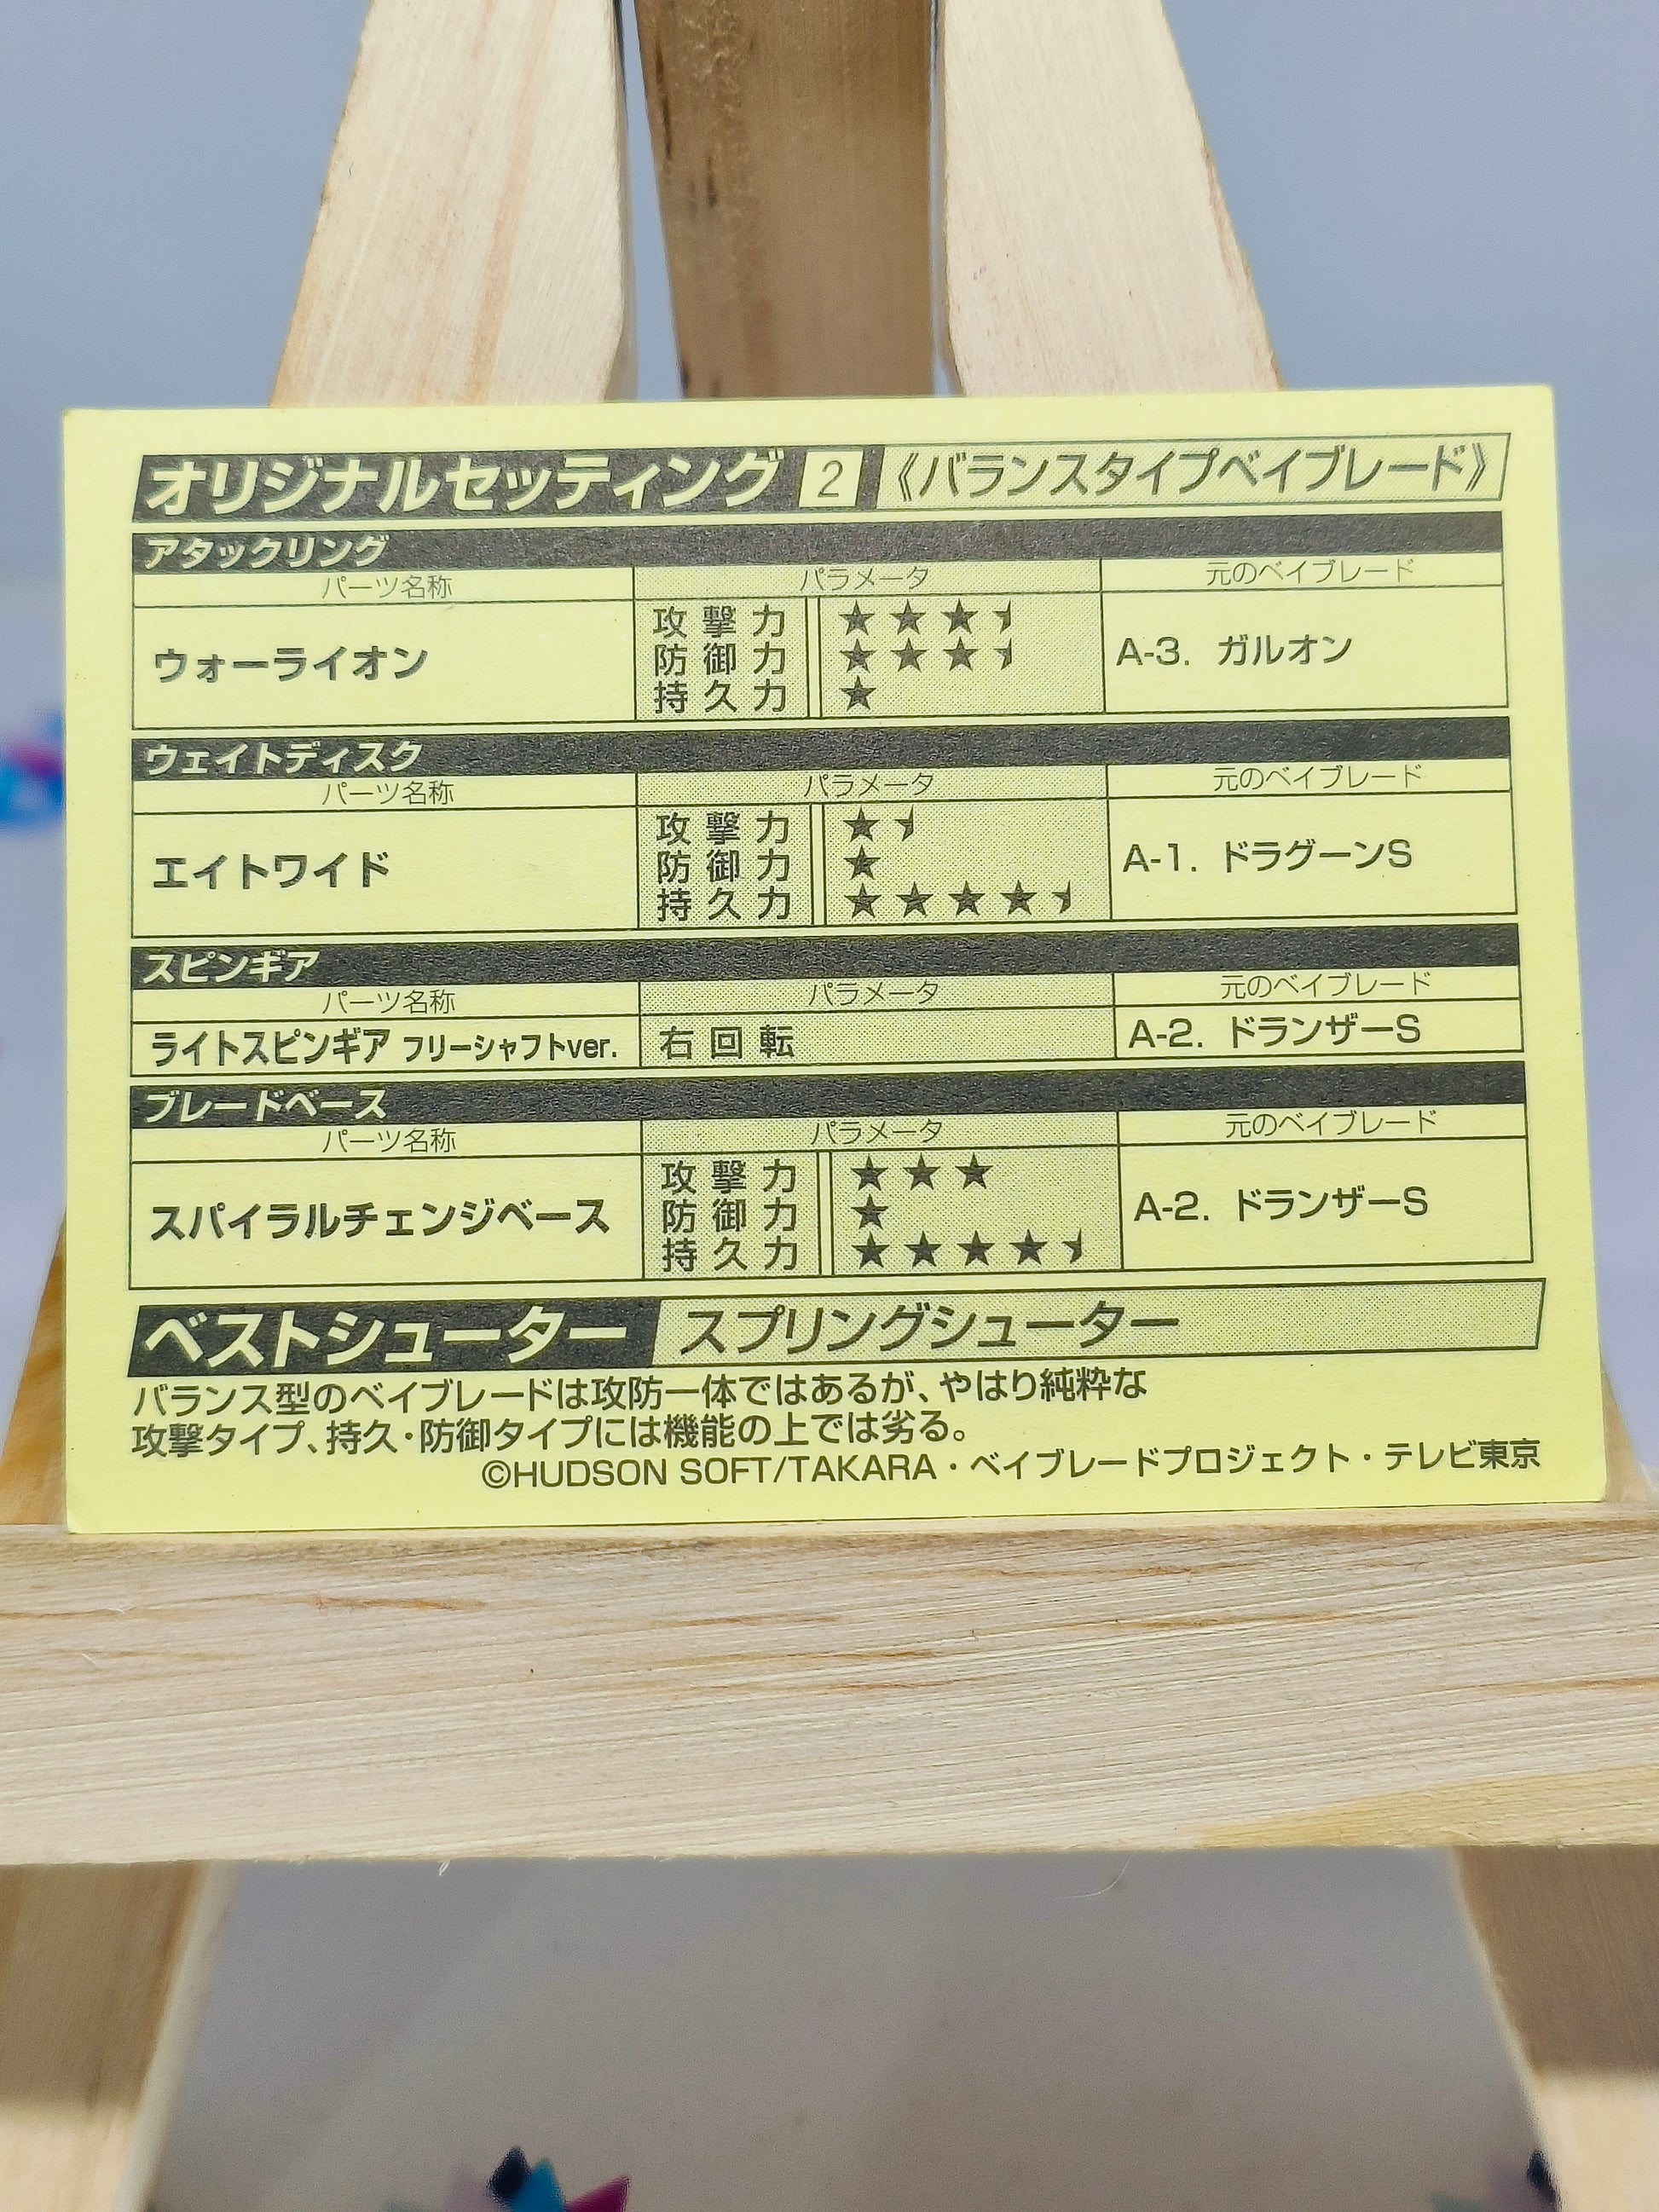 オリジナルセッティング 2 《バランスタイプベイブレード》
アタックリング
パーツ名称 パラメータ 元のベイブレード
ウォーライオン
攻撃力 ★★★⯨
防御力 ★★★⯨
持久力 ★
A-3. ガルオン
ウェイトディスク
パーツ名称 パラメータ 元のベイブレード
エイトワイド
攻撃力 ★⯨
防御力 ★
持久力 ★★★★⯨
A-1. ドラグーンS
スピンギア
パーツ名称 パラメータ 元のベイブレード
ライトスピンギア フリーシャフトver. 右回転 A-2. ドランザーS
ブレードベース
パーツ名称 パラメータ 元のベイブレード
スパイラルチェンジベース
攻撃力 ★★★
防御力 ★
持久力 ★★★★⯨
A-2. ドランザーS
ベストシューター スプリングシューター
バランス型のベイブレードは攻防一体ではあるが、やはり純粋な
攻撃タイプ、持久・防御タイプには機能の上では劣る。
©HUDSON SOFT/TAKARA・ベイブレードプロジェクト・テレビ東京